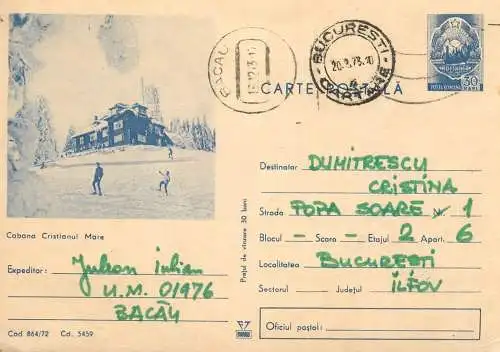 BUCUREȘTI
20.2.73.10
CARTARE
BACĂU
POSTA ROMANA
30
CARTE POȘTALĂ
Destinatar DUMITRESCU
CRISTINA
Strada POPA SOARE Nr. 1
Blocul – Scara – Etajul 2 Apart. 6
Localitatea BUCUREȘTI
Sectorul Județul ILFOV
Oficiul poștal:
Prețul de vînzare 30 bani
Cabana Cristianul Mare
Expeditor: Iulian
U.M. 01976
BACĂU
Cod 864/72 Cd. 5459